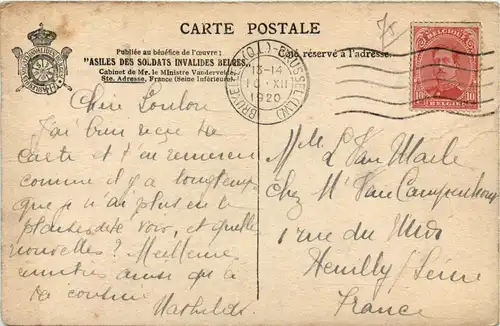 CARTE POSTALE
Publiée au bénéfice de l'œuvre ;
"ASILES DES SOLDATS INVALIDES BELGES"
Cabinet de Mr. le Ministre Vandervelde
Ste. Adresse, France (Seine Inférieure)
Côté réservé à l'adresse.
BRUXELLES (Q.L.)-BRUSSEL (L.W.)
13-14
10 XII
1920
BELGIQUE
10 10
BELGIE
Cher Loulou
J'ai bien reçu ta
carte et t'en remercie
comme il y a longtemps
que je n'ai plus eu le
plaisir de te voir, et quelle
nouvelles? Meilleure
ainsi qu'à
ta cousine
Mathilde
Mlle L Van Maele
chez Mr Van Campenhout
1 rue du Midi
Neuilly / Seine
France